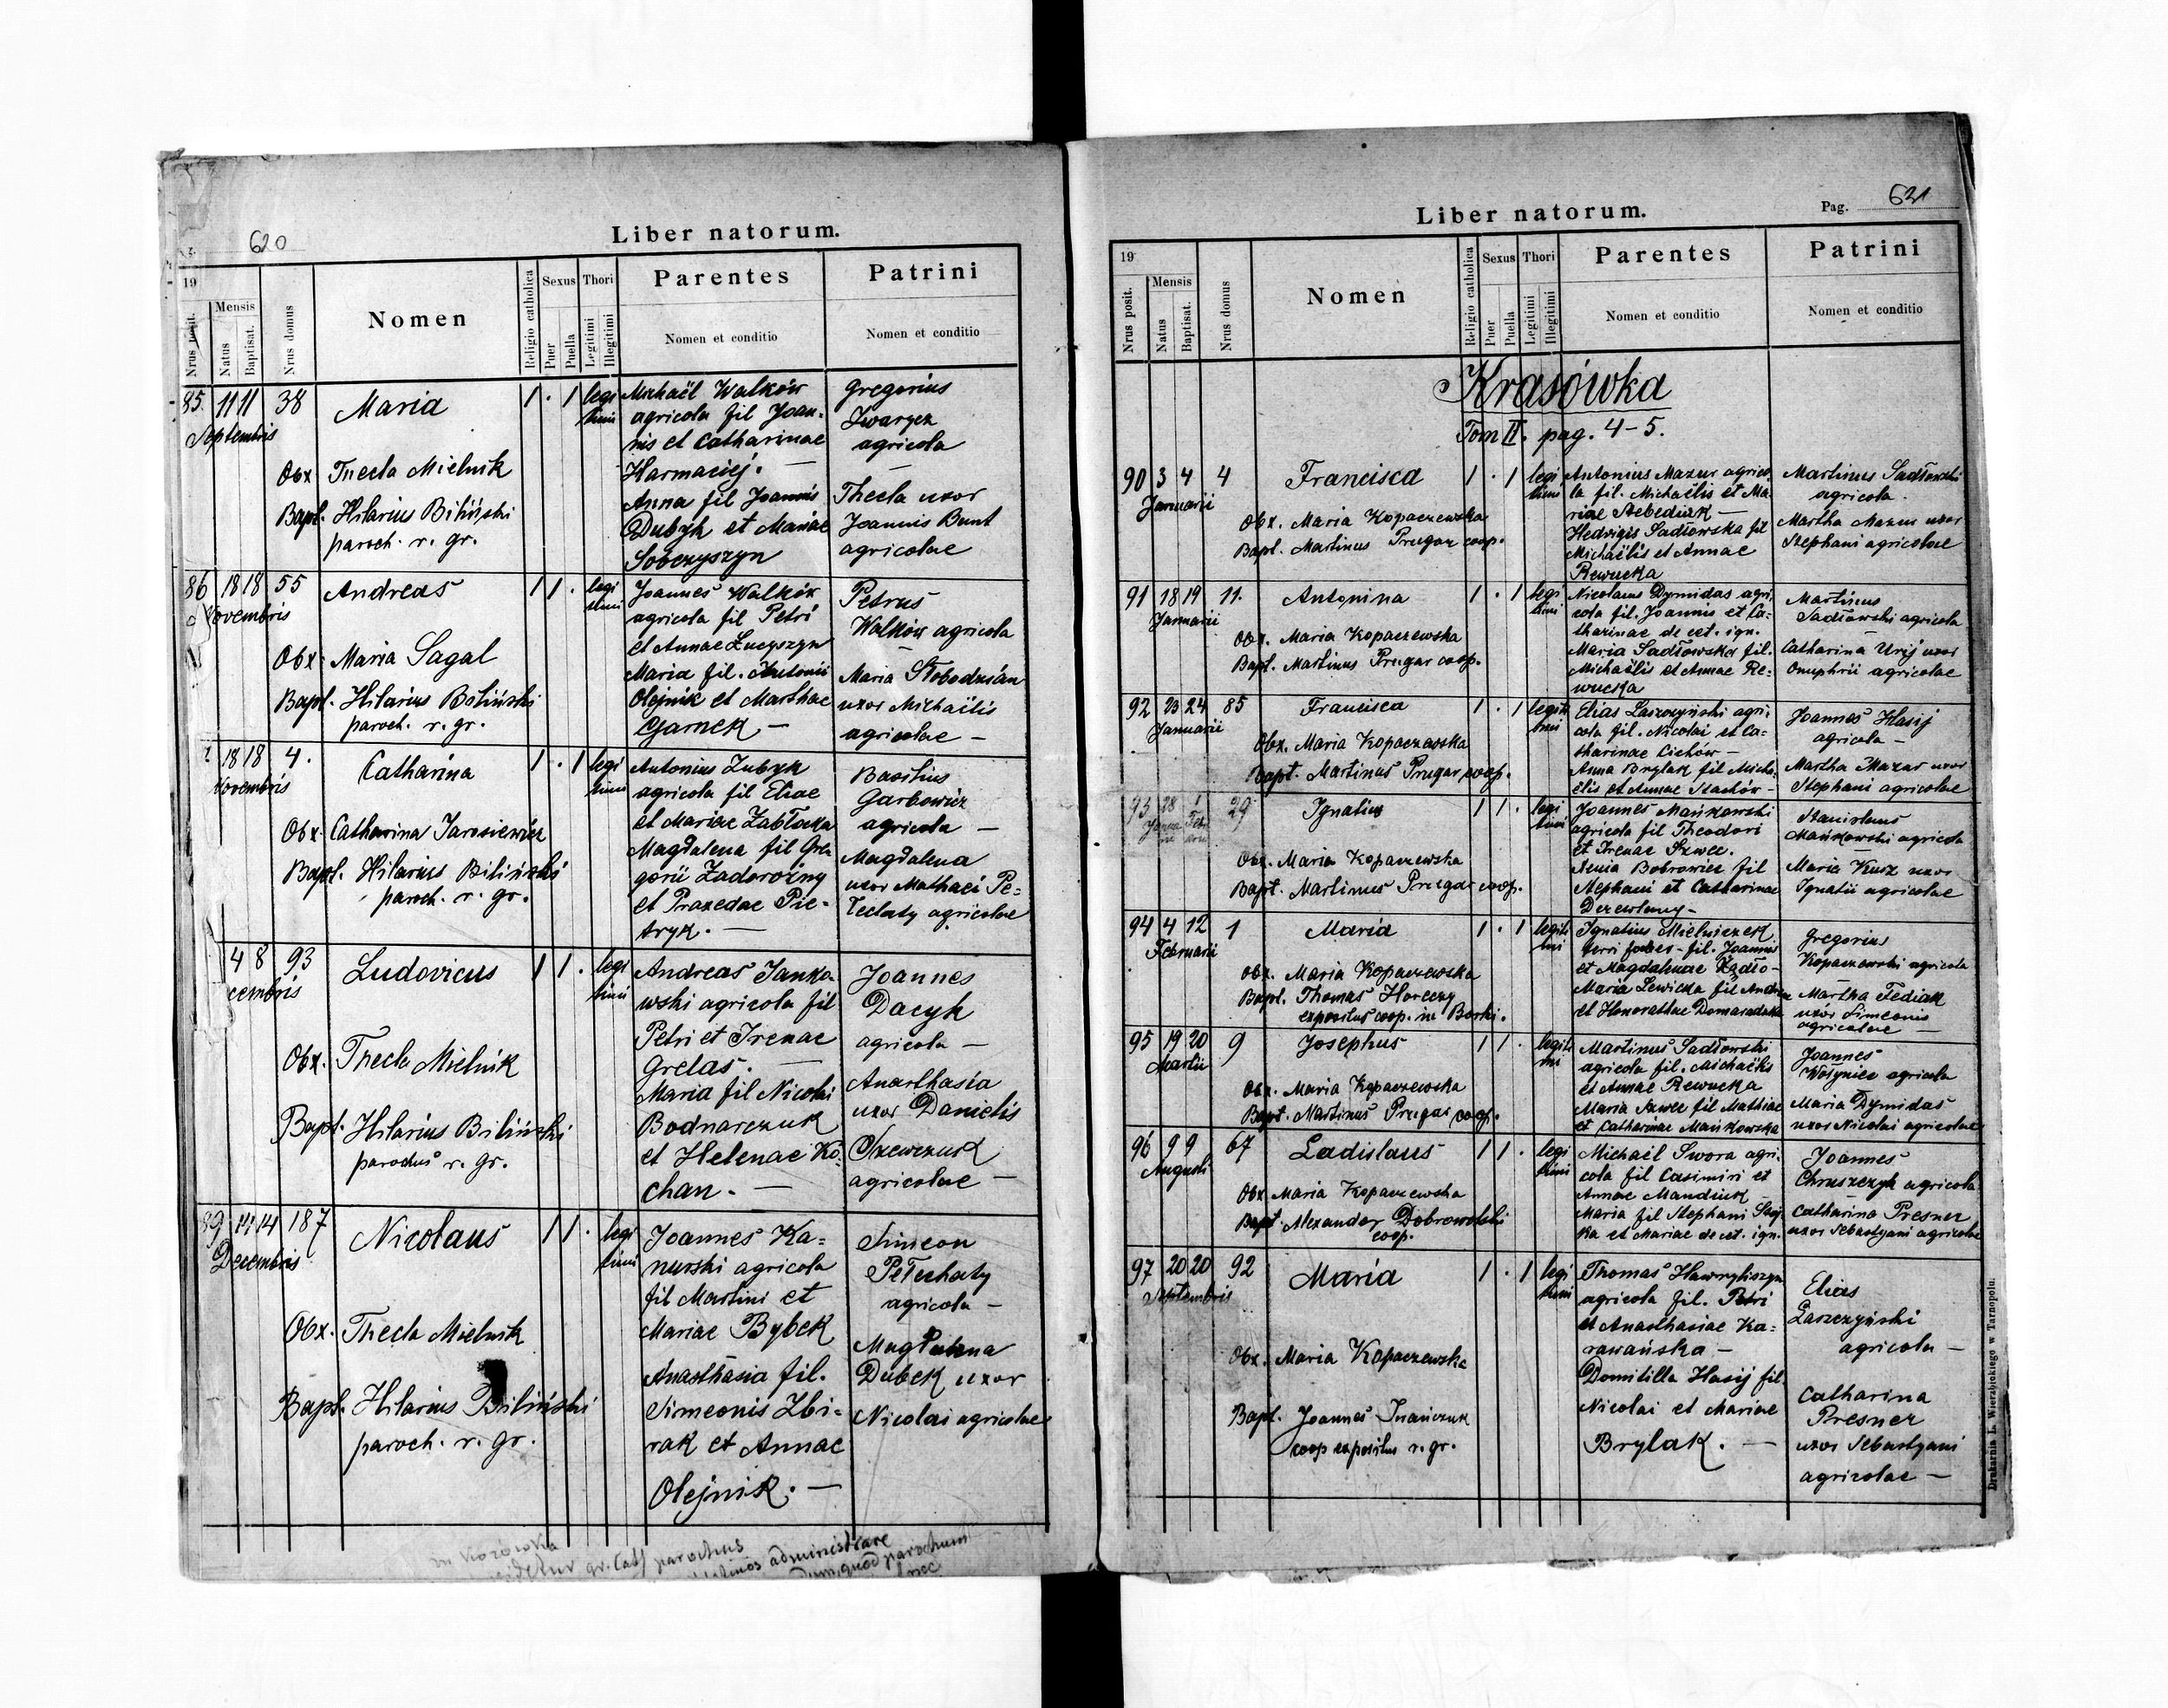 620
Liber natorum.
19
Nrus posit.
Mensis
Natus
Baptisat.
Nrus domus
Nomen
Religio catholica
Sexus
Puer
Puella
Thori
Legitimi
Illegitimi
Parentes
Nomen et conditio
Patrini
Nomen et conditio
85. 11 11 38 Maria 1 . 1 legi
timi
Septembris
Obx Thecla Mielnik
Bapt. Hilarius Biliński
paroch. r. gr.
Michaël Walków
agricola fil Joan-
nis et Catharinae
Harmaciej. —
Anna fil Joannis
Dubyk et Mariae
Sobczyszyn
Gregorius
Iwarycz
agricola
—
Thecla uxor
Joannis Bunt
agricolae
86 18 18 55 Andreas 1 1 . legi
timi
Novembris
Obx. Maria Sagal
Bapt. Hilarius Biliński
paroch. r. gr.
Joannes Walków
agricola fil Petri
et Annae Łucyszyn
Maria fil. Antonii
Olejnik et Marthae
Garnek —
Petrus
Walków agricola
—
Maria Słobodzian
uxor Michaëlis
agricolae —
18 18 4. Catharina 1 . 1 legi
timi
Novembris
Obx. Catharina Jarosiewicz
Bapt. Hilarius Biliński
paroch. r. gr.
Antonius Zubyk
agricola fil Eliae
et Mariae Zabłocka
Magdalena fil Gre
gorii Zadorożny
et Praxedae Pie-
tryk. —
Basilius
Garbowicz
agricola —
Magdalena
uxor Mathaei Pe=
łechaty agricolae
4 8 93 Ludovicus 1 1 . legi
timi
cembris
Obx. Thecla Mielnik
Bapt. Hilarius Biliński
parochus r. gr.
Andreas Janko
wski agricola fil
Petri et Irenae
Grelas. —
Maria fil Nicolai
Bodnarczuk
et Helenae Ko-
chan. —
Joannes
Dacyk
agricola —
Anasthasia
uxor Danielis
Szewczuk
agricolae —
89 14 14 187 Nicolaus 1 1 . legi
timi
Decembris
Obx. Thecla Mielnik
Bapt. Hilarius Biliński
paroch. r. gr.
Joannes Ka=
nurski agricola
fil Martini et
Mariae Bybek
Anasthasia fil.
Simeonis Zbi-
rak et Annae
Olejnik. —
Simeon
Pełechaty
agricola —
Magdalena
Dubek uxor
Nicolai agricolae
gr. Cath parochus
administrare
quod parochum
nec
Liber natorum.
Pag. 621
19
Nrus posit.
Mensis
Natus
Baptisat.
Nrus domus
Nomen
Religio catholica
Sexus
Puer
Puella
Thori
Legitimi
Illegitimi
Parentes
Nomen et conditio
Patrini
Nomen et conditio
Krasówka
Tom II. pag. 4-5.
90 3 4 4 Francisca 1 . 1 legi
timi
Januarii
Obx. Maria Kopaczewska
Bapt. Martinus Prugar coop.
Antonius Mazur agrico
la fil. Michaëlis et Ma-
riae Stebediak —
Hedvigis Sadłowska fil
Michaëlis et Annae
Rewucka
Martinus Sadłowski
agricola.
Martha Mazur uxor
Stephani agricolae
91 18 19 11. Antonina 1 . 1 legi
timi
Januarii
Obx. Maria Kopaczewska
Bapt. Martinus Prugar coop.
Nicolaus Dymidas agri-
cola fil. Joannis et Ca-
tharinae de cet. ign.
Maria Sadłowska fil.
Michaëlis et Annae Re-
wucka
Martinus
Sadłowski agricola
Catharina Urij uxor
Onuphrii agricolae
92 23 24 85 Francisca 1 . 1 legiti
timi
Januarii
Obx. Maria Kopaczewska
Bapt. Martinus Prugar coop.
Elias Laszczyński agri-
cola fil. Nicolai et Ca-
tharinae Cichów —
Anna Brylak fil Micha-
ëlis et Annae Stachów —
Joannes Hasij
agricola —
Martha Mazur uxor
Stephani agricolae
93 28 1 29 Ignatius 1 1 . legi
timi
Obx. Maria Kopaczewska
Bapt. Martinus Prugar coop.
Joannes Mańkowski
agricola fil Theodori
et Irenae Szwec.
Anna Bobrowicz fil
Stephani et Catharinae
Derewlany —
Stanislaus
Mańkowski agricola
Maria Kusz uxor
Ignatii agricolae
94 4 12 1 Maria 1 . 1 legiti
mi
Februarii
Obx. Maria Kopaczewska
Bapt. Thomas Horeczy
expositus coop. in Borki.
Ignatius Mielniczek
ferri faber - fil. Joannis
et Magdalenae Kądło-
Maria Lewicka fil Andreae
et Honorathae Domaradzka
Gregorius
Kopaczewski agricola
Martha Fediak
uxor Simeonis
agricolae —
95 19 20 9 Josephus 1 1 . legiti
mi
Martii
Obx. Maria Kopaczewska
Bapt. Martinus Prugar coop.
Martinus Sadłowski
agricola fil. Michaëlis
et Annae Rewucka
Maria Szwec fil Mathiae
et Catharinae Mańkowska
Joannes
Wołyniec agricola
Maria Dymidas
uxor Nicolai agricolae
96 9 9 67 Ladislaus 1 1 . legi
timi
Augusti
Obx. Maria Kopaczewska
Bapt. Alexander Dobrowolski
coop.
Michaël Swora agri-
cola fil Casimiri et
Annae Mandiuk —
Maria fil Stephani Saj
ka et Mariae de cet. ign.
Joannes
Chruszczyk agricola
Catharina Presner
uxor Sebastyani agricolae
97 20 20 92 Maria 1 . 1 legi
timi
Septembris
Obx. Maria Kopaczewska
Bapt. Joannes Iwańczuk
coop expositus r. gr.
Thomas Hawryliszyn
agricola fil. Petri
et Anasthasiae Ka-
rawańska —
Domitilla Hasij fil.
Nicolai et Mariae
Brylak. —
Elias
Łaszczyński
agricola —
Catharina
Presner
uxor Sebastyani
agricolae —
Drukarnia L. Wierzbickiego w Tarnopolu.